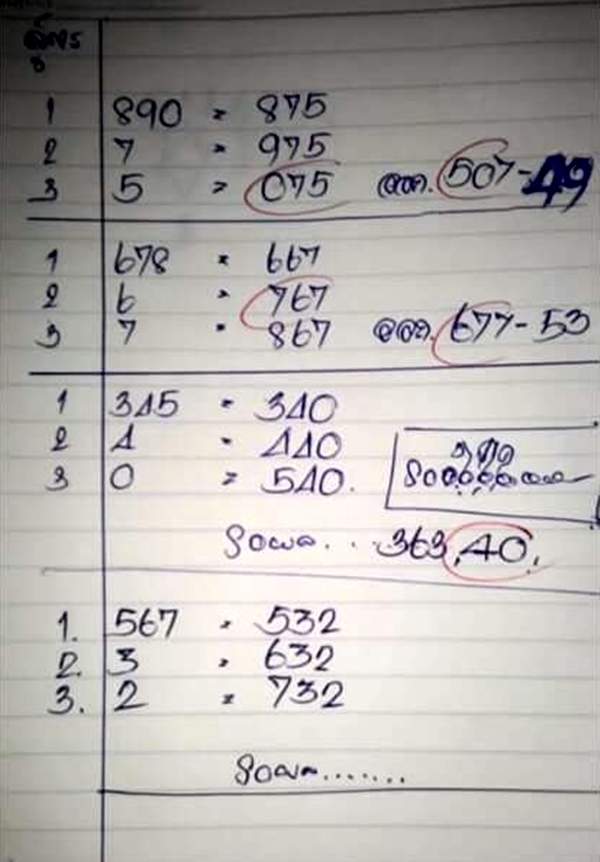 สูตร
1 890 = 875
2 7 = 975
3 5 = 075 ออก. 507-49
1 678 = 667
2 6 = 767
3 7 = 867 ออก. 677-53
1 345 = 340
2 4 = 440
3 0 = 540.
รอผล... 363,40,
1. 567 = 532
2. 3 = 632
3. 2 = 732
รอผล.......